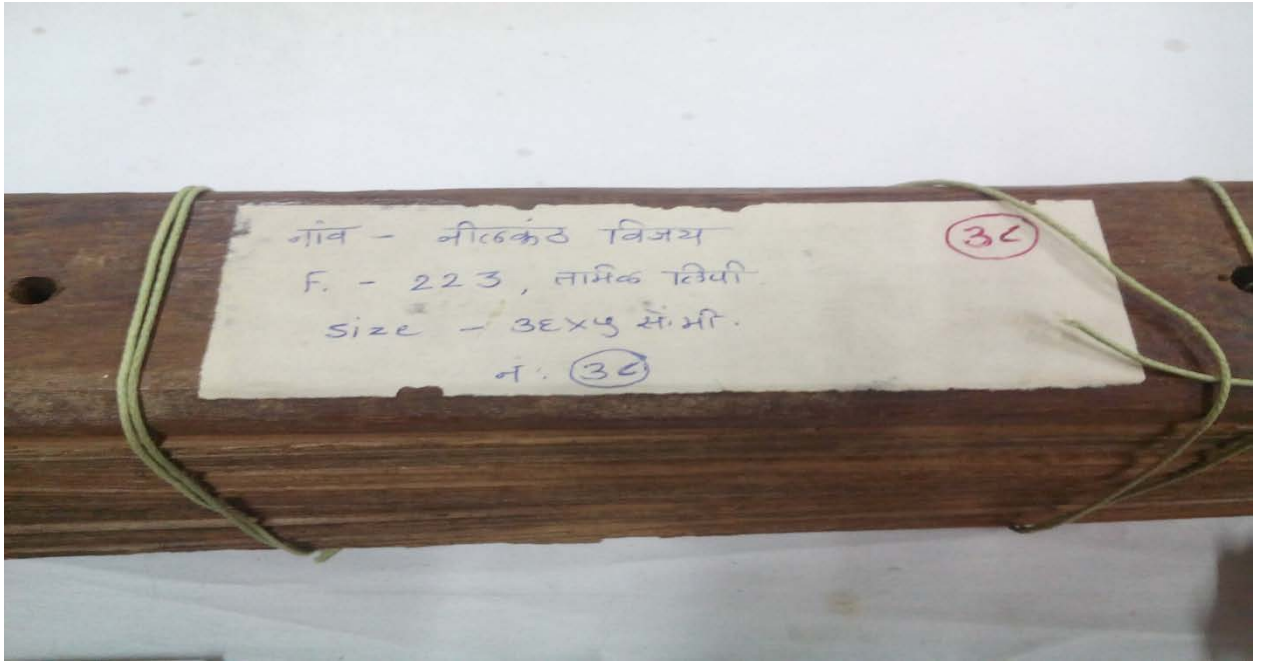 नांव - नीलकंठ विजय
३८
F. - 223, तामिळ लिपी.
Size - ३६×५ सें.मी.
नं. ३८